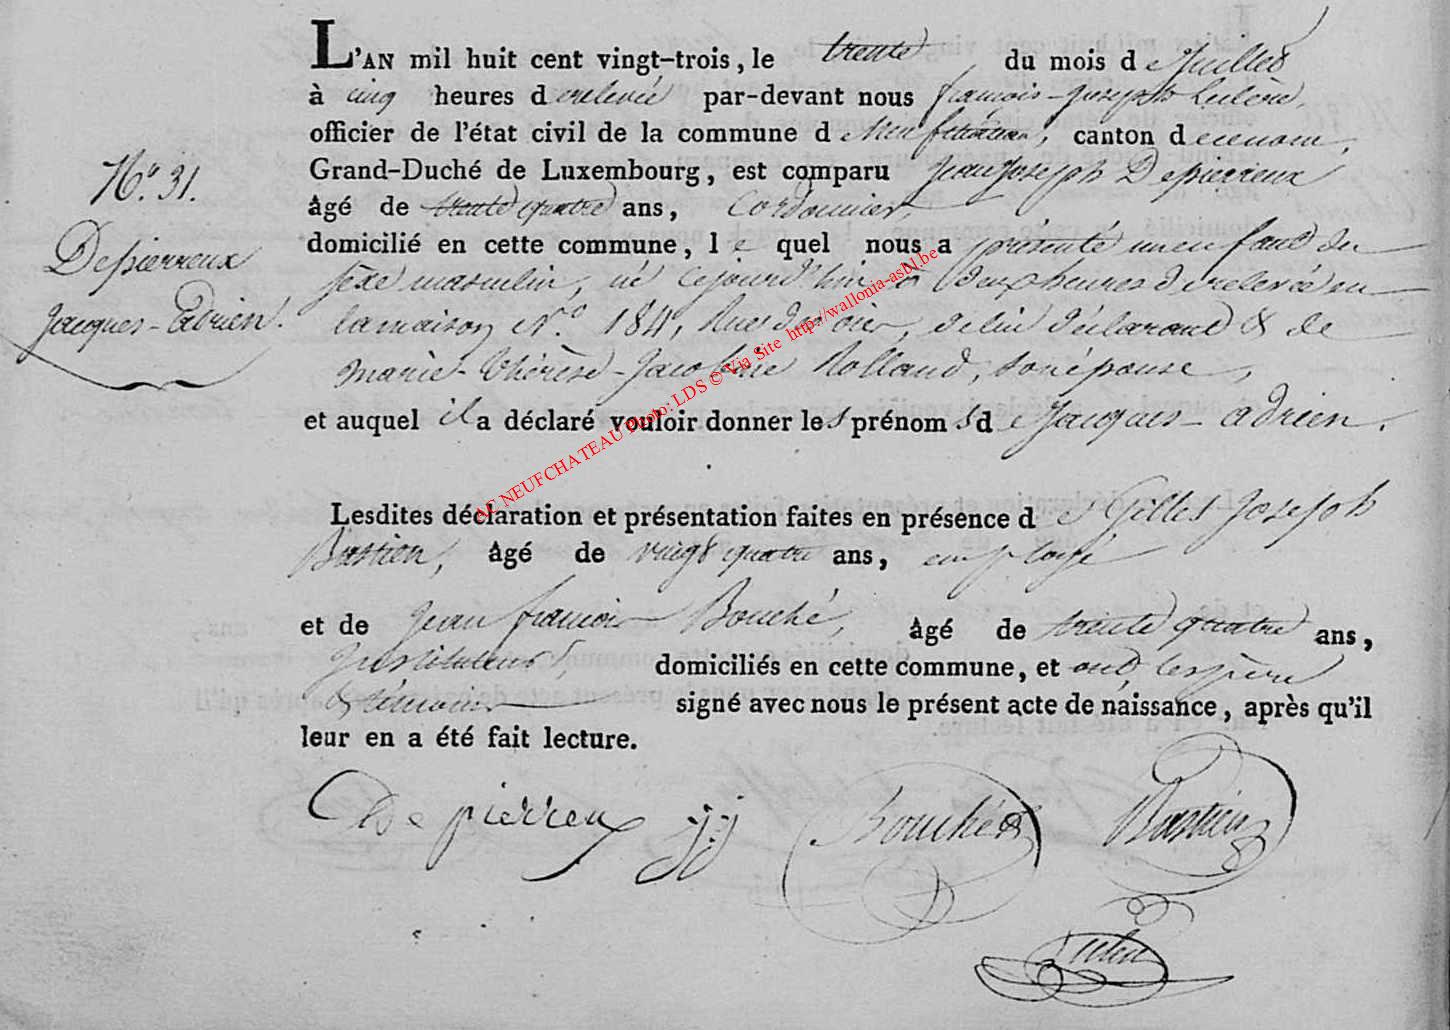 L'AN mil huit cent vingt-trois, le trente du mois de Juillet
à cinq heures de relevée par-devant nous françois-Joseph
officier de l'état civil de la commune de Neufchateau, canton d
Grand-Duché de Luxembourg, est comparu Jean Joseph Depierreux
âgé de trente quatre ans, Cordonnier,
domicilié en cette commune, le quel nous a présenté un enfant du
sexe masculin, né cejourd'hui à deux heures de relevée en
la maison N.º 184, Rue de lui déclarant & de
Marie-Thérèse-Jacobine Rolland, son épouse,
et auquel il a déclaré vouloir donner les prénoms de Jacques-adrien.
Nº 31.
Depierreux
Jacques-Adrien.
Lesdites déclaration et présentation faites en présence de Gilles Joseph
Bastien, âgé de vingt quatre ans, employé
et de Jean françois Bouché, âgé de trente quatre ans,
Instituteur, domiciliés en cette commune, et ont, les père
& témoins signé avec nous le présent acte de naissance, après qu'il
leur en a été fait lecture.
Depierreux JJ Bouché Bastien
AC NEUFCHATEAU Photo: LDS © Via Site http://wallonia-asbl.be